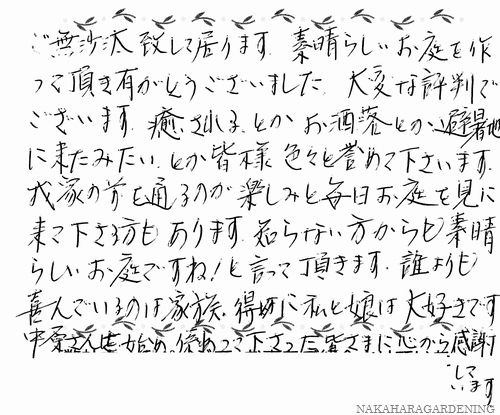 ご無沙汰致して居ります。素晴らしいお庭を作
って頂き有がとうございました。大変な評判で
ございます。癒されるとかお洒落とか、避暑地
に来たみたいとか皆様色々と誉めて下さいます。
我家の前を通るのが楽しみと毎日お庭を見に
来て下さる方もあります。知らない方からも素晴
らしいお庭ですね!と言って頂きます。誰よりも
喜んでいるのは家族。特に私と娘は大好きです
中原さんを始め、携わって下さった皆さまに心から感謝
して
います
NAKAHARAGARDENING